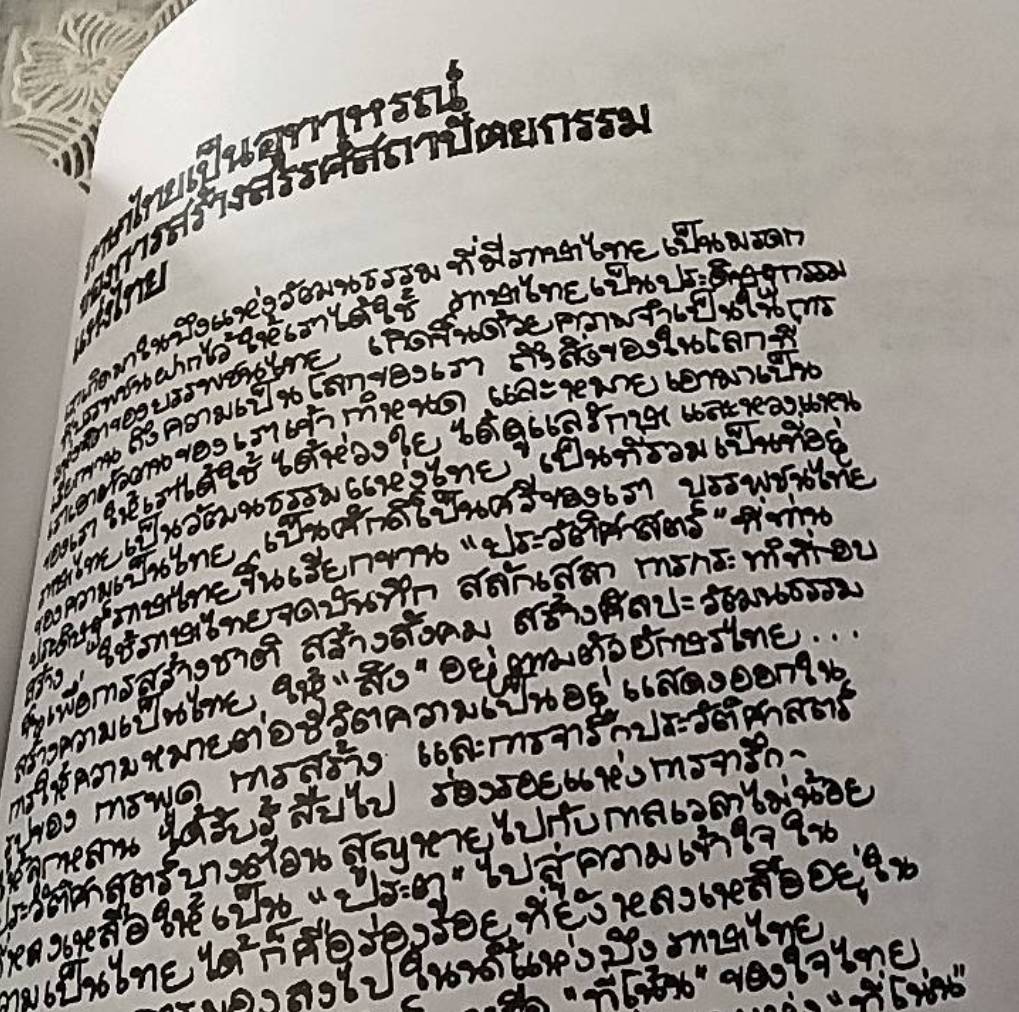 ภาษาไทยเป็นอุทาหรณ์
ของการสร้างสรรค์สถาปัตยกรรม
แห่งไทย
เราเกิดมาในบึงแห่งวัฒนธรรม ที่มีภาษาไทย เป็นมรดก
ที่บรรพชนฝากไว้ให้เราได้ใช้ ภาษาไทยเป็นประดิษฐกรรม
ของบรรพชนไทย เกิดขึ้นด้วยความจำเป็นในการ
เรียกขาน ถึงความเป็นโลกของเรา ถึงสิ่งของในโลกที่
เราเอาตัวตนของเราเข้ากำหนด และหมายเอามาเป็น
ของเรา ให้เราได้ใช้ ได้ห่วงใย ได้ดูแลรักษา และหวงแหน
ภาษาไทย เป็นวัฒนธรรมแห่งไทย เป็นที่รวมเป็นที่อยู่
ของความเป็นไทย เป็นศักดิ์เป็นศรีของเรา บรรพชนไทย
ประดิษฐ์ภาษาไทยขึ้นเรียกขาน "ประวัติศาสตร์" ที่ท่าน
สร้าง ใช้ภาษาไทยจดบันทึก สลักเสลา การกระทำที่กอบ
เพื่อการสร้างชาติ สร้างสังคม สร้างศิลปะวัฒนธรรม
สร้างความเป็นไทย ให้ "สิง" อยู่ตามตัวอักษรไทย...
การให้ความหมายต่อชีวิตความเป็นอยู่ แสดงออกใน
รูปของ การพูด การสร้าง และการจารึกประวัติศาสตร์
ให้ลูกหลาน ได้รับรู้ สืบไป ร่องรอยแห่งการจารึก-
ประวัติศาสตร์บางตอน สูญหายไปกับกาลเวลาไม่น้อย
ที่หลงเหลือให้เป็น "ประตู" ไปสู่ความเข้าใจใน
ความเป็นไทย ได้ก็คือร่องรอย ที่ยังหลงเหลืออยู่ใน
มองลงไปในนที่แห่งบึง ภาษาไทย
"ที่โน้น" ของใจไทย
"ที่โน่น"